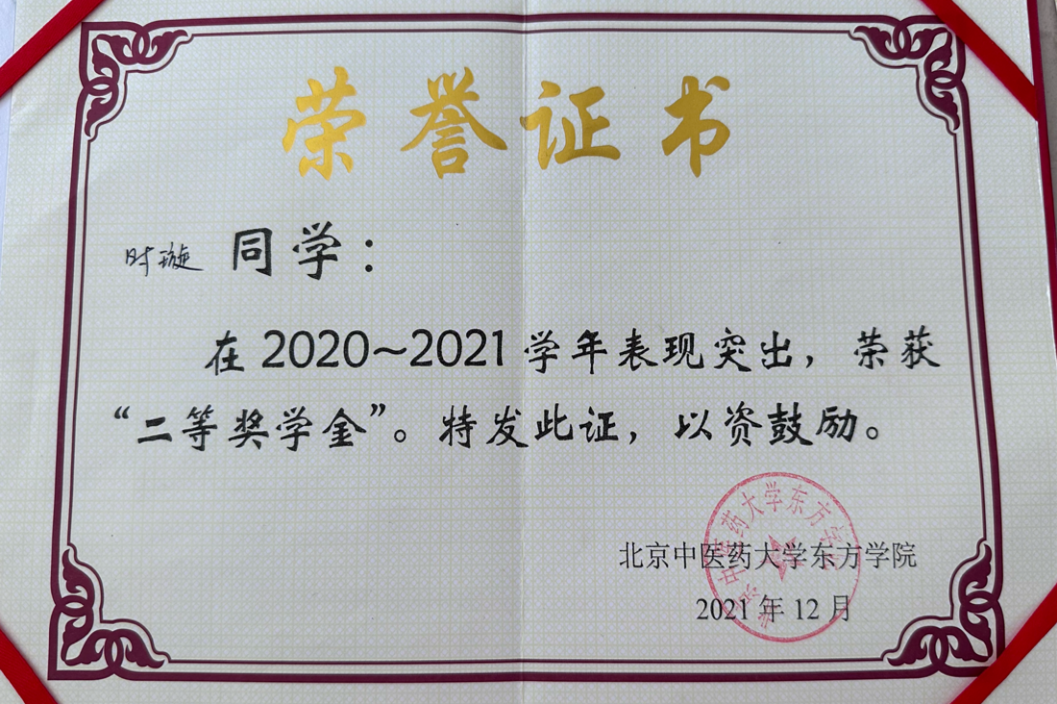 荣誉证书
时璇 同学：
在 2020~2021 学年表现突出，荣获
“二等奖学金”。特发此证，以资鼓励。
北京中医药大学东方学院
2021 年 12 月
北京中医药大学东方学院